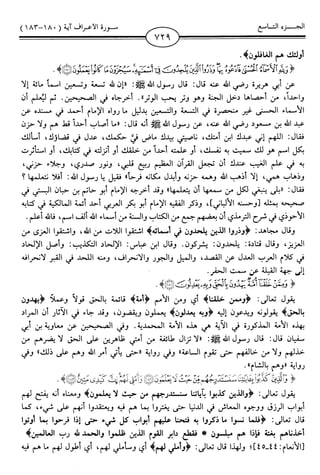 الجـــزء التـــاسع
٧٢٩
سـورة الأعـراف آية (١٨٠-١٨٣)
أولئك هم الغافلون﴾.
﴿وَلِلَّهِ الْأَسْمَاءُ الْحُسْنَىٰ فَادْعُوهُ بِهَا وَذَرُوا الَّذِينَ يُلْحِدُونَ فِي أَسْمَائِهِ سَيُجْزَوْنَ مَا كَانُوا يَعْمَلُونَ﴾.
عن أبي هريرة رضي الله عنه قال: قال رسول الله ﷺ: «إن لله تسعة وتسعين اسماً مائة إلا
واحداً، من أحصاها دخل الجنة وهو وتر يحب الوتر». أخرجاه في الصحيحين. ثم ليُعلم أن
الأسماء الحسنى غير منحصرة في التسعة والتسعين بدليل ما رواه الإمام أحمد في مسنده عن
عبد الله بن مسعود رضي الله عنه، عن رسول الله ﷺ أنه قال: «ما أصاب أحداً قط هم ولا حزن
فقال: اللهم إني عبدك ابن أمتك، ناصيتي بيدك ماضٍ فيَّ حكمك، عدل في قضاؤك، أسألك
بكل اسم هو لك سميت به نفسك، أو علمته أحداً من خلقك أو أنزلته في كتابك، أو استأثرت
به في علم الغيب عندك أن تجعل القرآن العظيم ربيع قلبي، ونور صدري، وجلاء حزني،
وذهاب همي، إلا أذهب الله وهمه حزنه وأبدل مكانه فرحاً» فقيل يا رسول الله: أفلا نتعلمها؟
فقال: «بلى ينبغي لكل من سمعها أن يتعلمها» وقد أخرجه الإمام أبو حاتم بن حبان البستي في
صحيحه بمثله [وحسنه الألباني]، وذكر الفقيه الإمام أبو بكر العربي أحد أئمة المالكية في كتابه
الأحوذي في شرح الترمذي أن بعضهم جمع من الكتاب والسنة من أسماء الله ألف اسم، فالله أعلم.
وقال مجاهد: ﴿وذروا الذين يلحدون في أسمائه﴾ اشتقوا اللات من الله، واشتقوا العزى من
العزيز، وقال قتادة: يلحدون: يشركون. وقال ابن عباس: الإلحاد التكذيب: وأصل الإلحاد
في كلام العرب العدل عن القصد، والميل والجور والانحراف، ومنه اللحد في القبر لانحرافه
إلى جهة القبلة عن سمت الحفر.
﴿وَمِمَّنْ خَلَقْنَا أُمَّةٌ يَهْدُونَ بِالْحَقِّ وَبِهِ يَعْدِلُونَ﴾.
يقول تعالى: ﴿وممن خلقنا﴾ أي ومن الأمم ﴿أمة﴾ قائمة بالحق قولاً وعملاً ﴿يهدون
بالحق﴾ يقولونه ويدعون إليه ﴿وبه يعدلون﴾ يعملون ويقضون، وقد جاء في الآثار أن المراد
بهذه الأمة المذكورة في الآية هي هذه الأمة المحمدية. وفي الصحيحين عن معاوية بن أبي
سفيان قال: قال رسول الله ﷺ: «لا تزال طائفة من أمتي ظاهرين على الحق لا يضرهم من
خذلهم ولا من خالفهم حتى تقوم الساعة» وفي رواية «حتى يأتي أمر الله وهم على ذلك» وفي
رواية «وهم بالشام».
﴿وَالَّذِينَ كَذَّبُوا بِآيَاتِنَا سَنَسْتَدْرِجُهُمْ مِنْ حَيْثُ لَا يَعْلَمُونَ وَأُمْلِي لَهُمْ إِنَّ كَيْدِي مَتِينٌ﴾.
يقول تعالى: ﴿والذين كذبوا بآياتنا سنستدرجهم من حيث لا يعلمون﴾ ومعناه أنه يفتح لهم
أبواب الرزق ووجوه المعاش في الدنيا حتى يغتروا بما هم فيه ويعتقدوا أنهم على شيء، كما
قال تعالى: ﴿فلما نسوا ما ذكروا به فتحنا عليهم أبواب كل شيء حتى إذا فرحوا بما أوتوا
أخذناهم بغتة فإذا هم مبلسون * فقطع دابر القوم الذين ظلموا والحمد لله رب العالمين﴾
[الأنعام: ٤٤-٤٥]؛ ولهذا قال تعالى: ﴿وأملي لهم﴾ أي وسأملي لهم، أي أطول لهم ما هم فيه